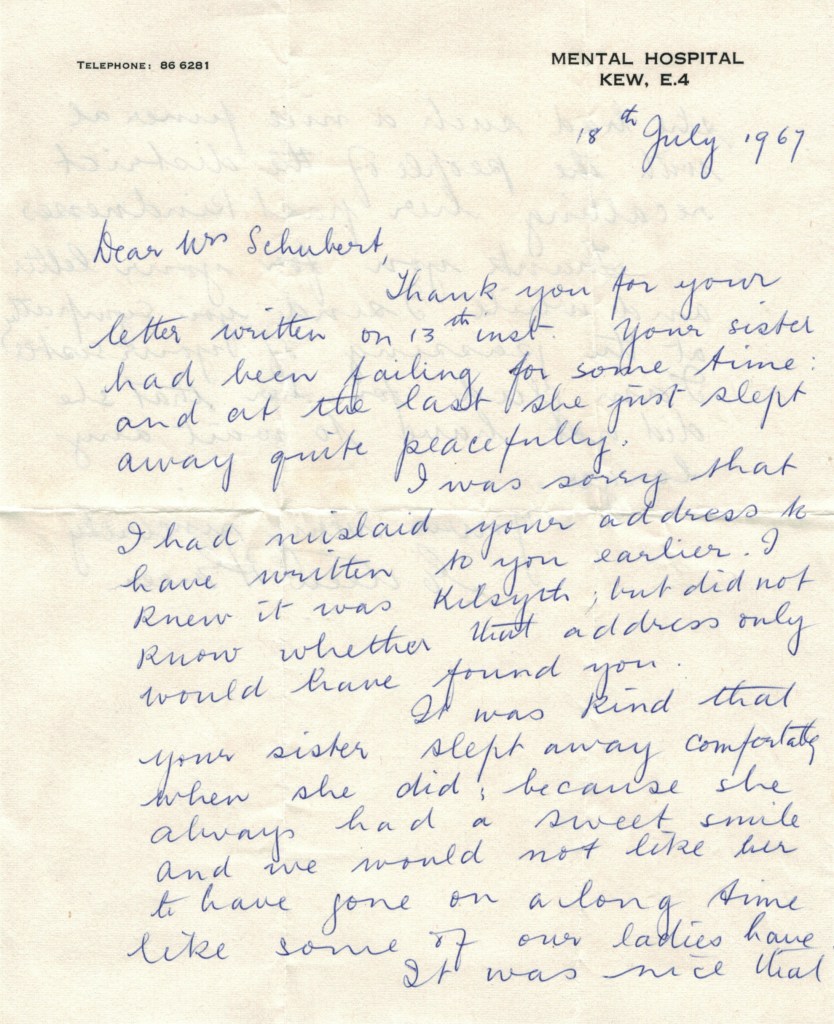 TELEPHONE: 86 6281
MENTAL HOSPITAL
KEW, E.4
18th July 1967
Dear Mrs Schubert,
Thank you for your
letter written on 13th inst. Your sister
had been failing for some time:
and at the last she just slept
away quite peacefully.
I was sorry that
I had mislaid your address to
have written to you earlier. I
knew it was Kilsyth; but did not
know whether that address only
would have found you.
It was kind that
your sister slept away comfortably
when she did; because she
always had a sweet smile
and we would not like her
to have gone on a long time
like some of our ladies have.
It was nice that